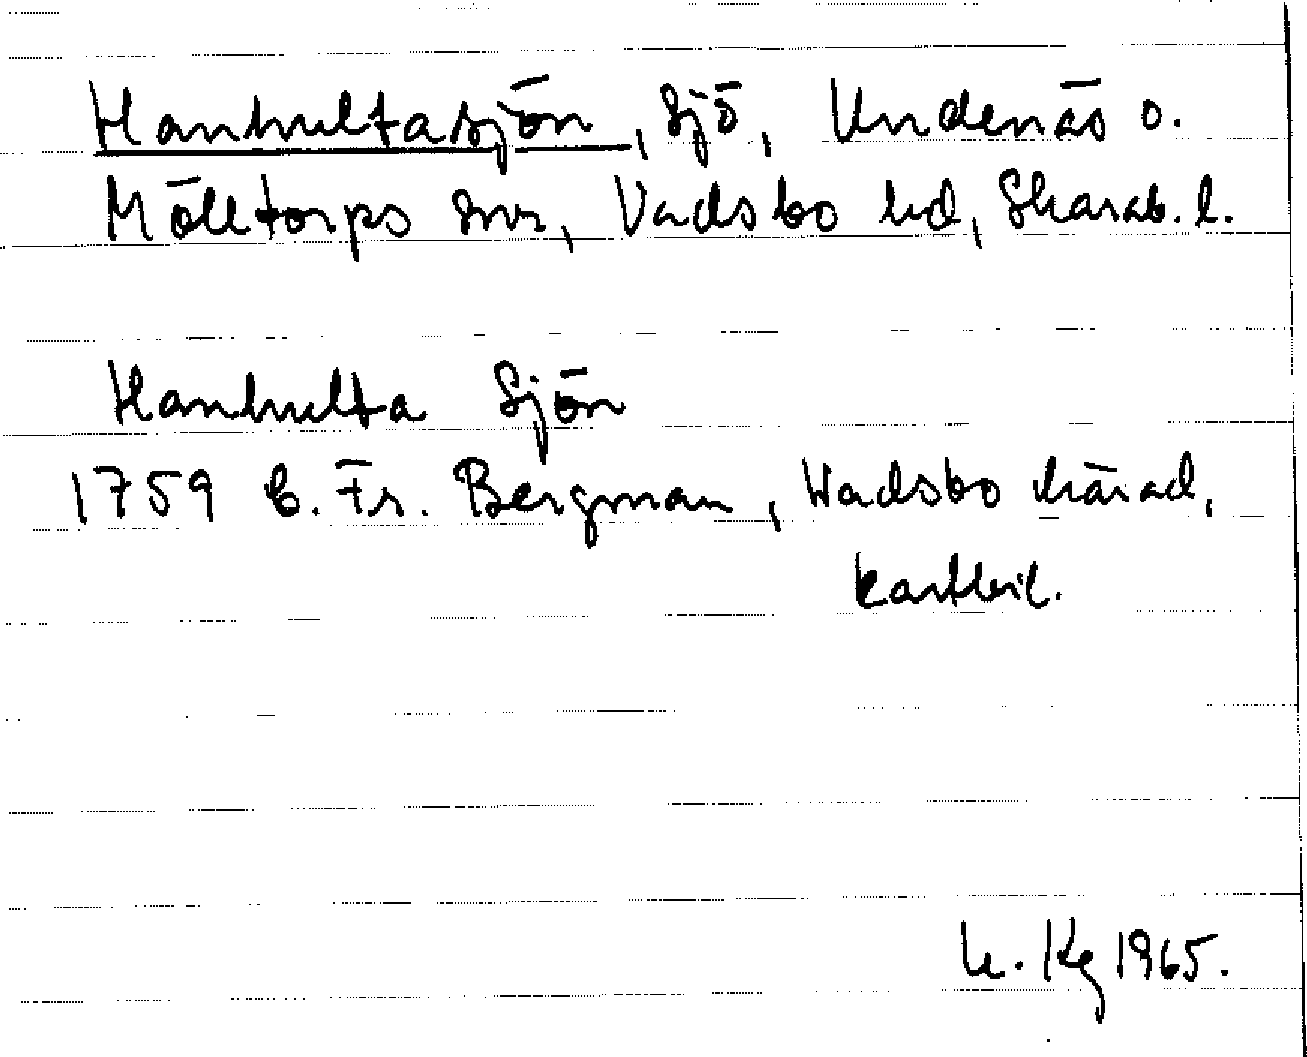 Hanhultasjön, sjö, Undenäs o.
Mölltorps snr, Vadsbo hd, Skarab. l.
Hanhulta Sjön
1759 C. Fr. Bergman, Wadsbo härad,
kartbil.
1965.